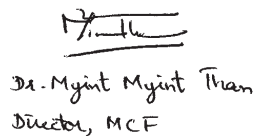 Dr. Myint Myint Than
Director, MCF